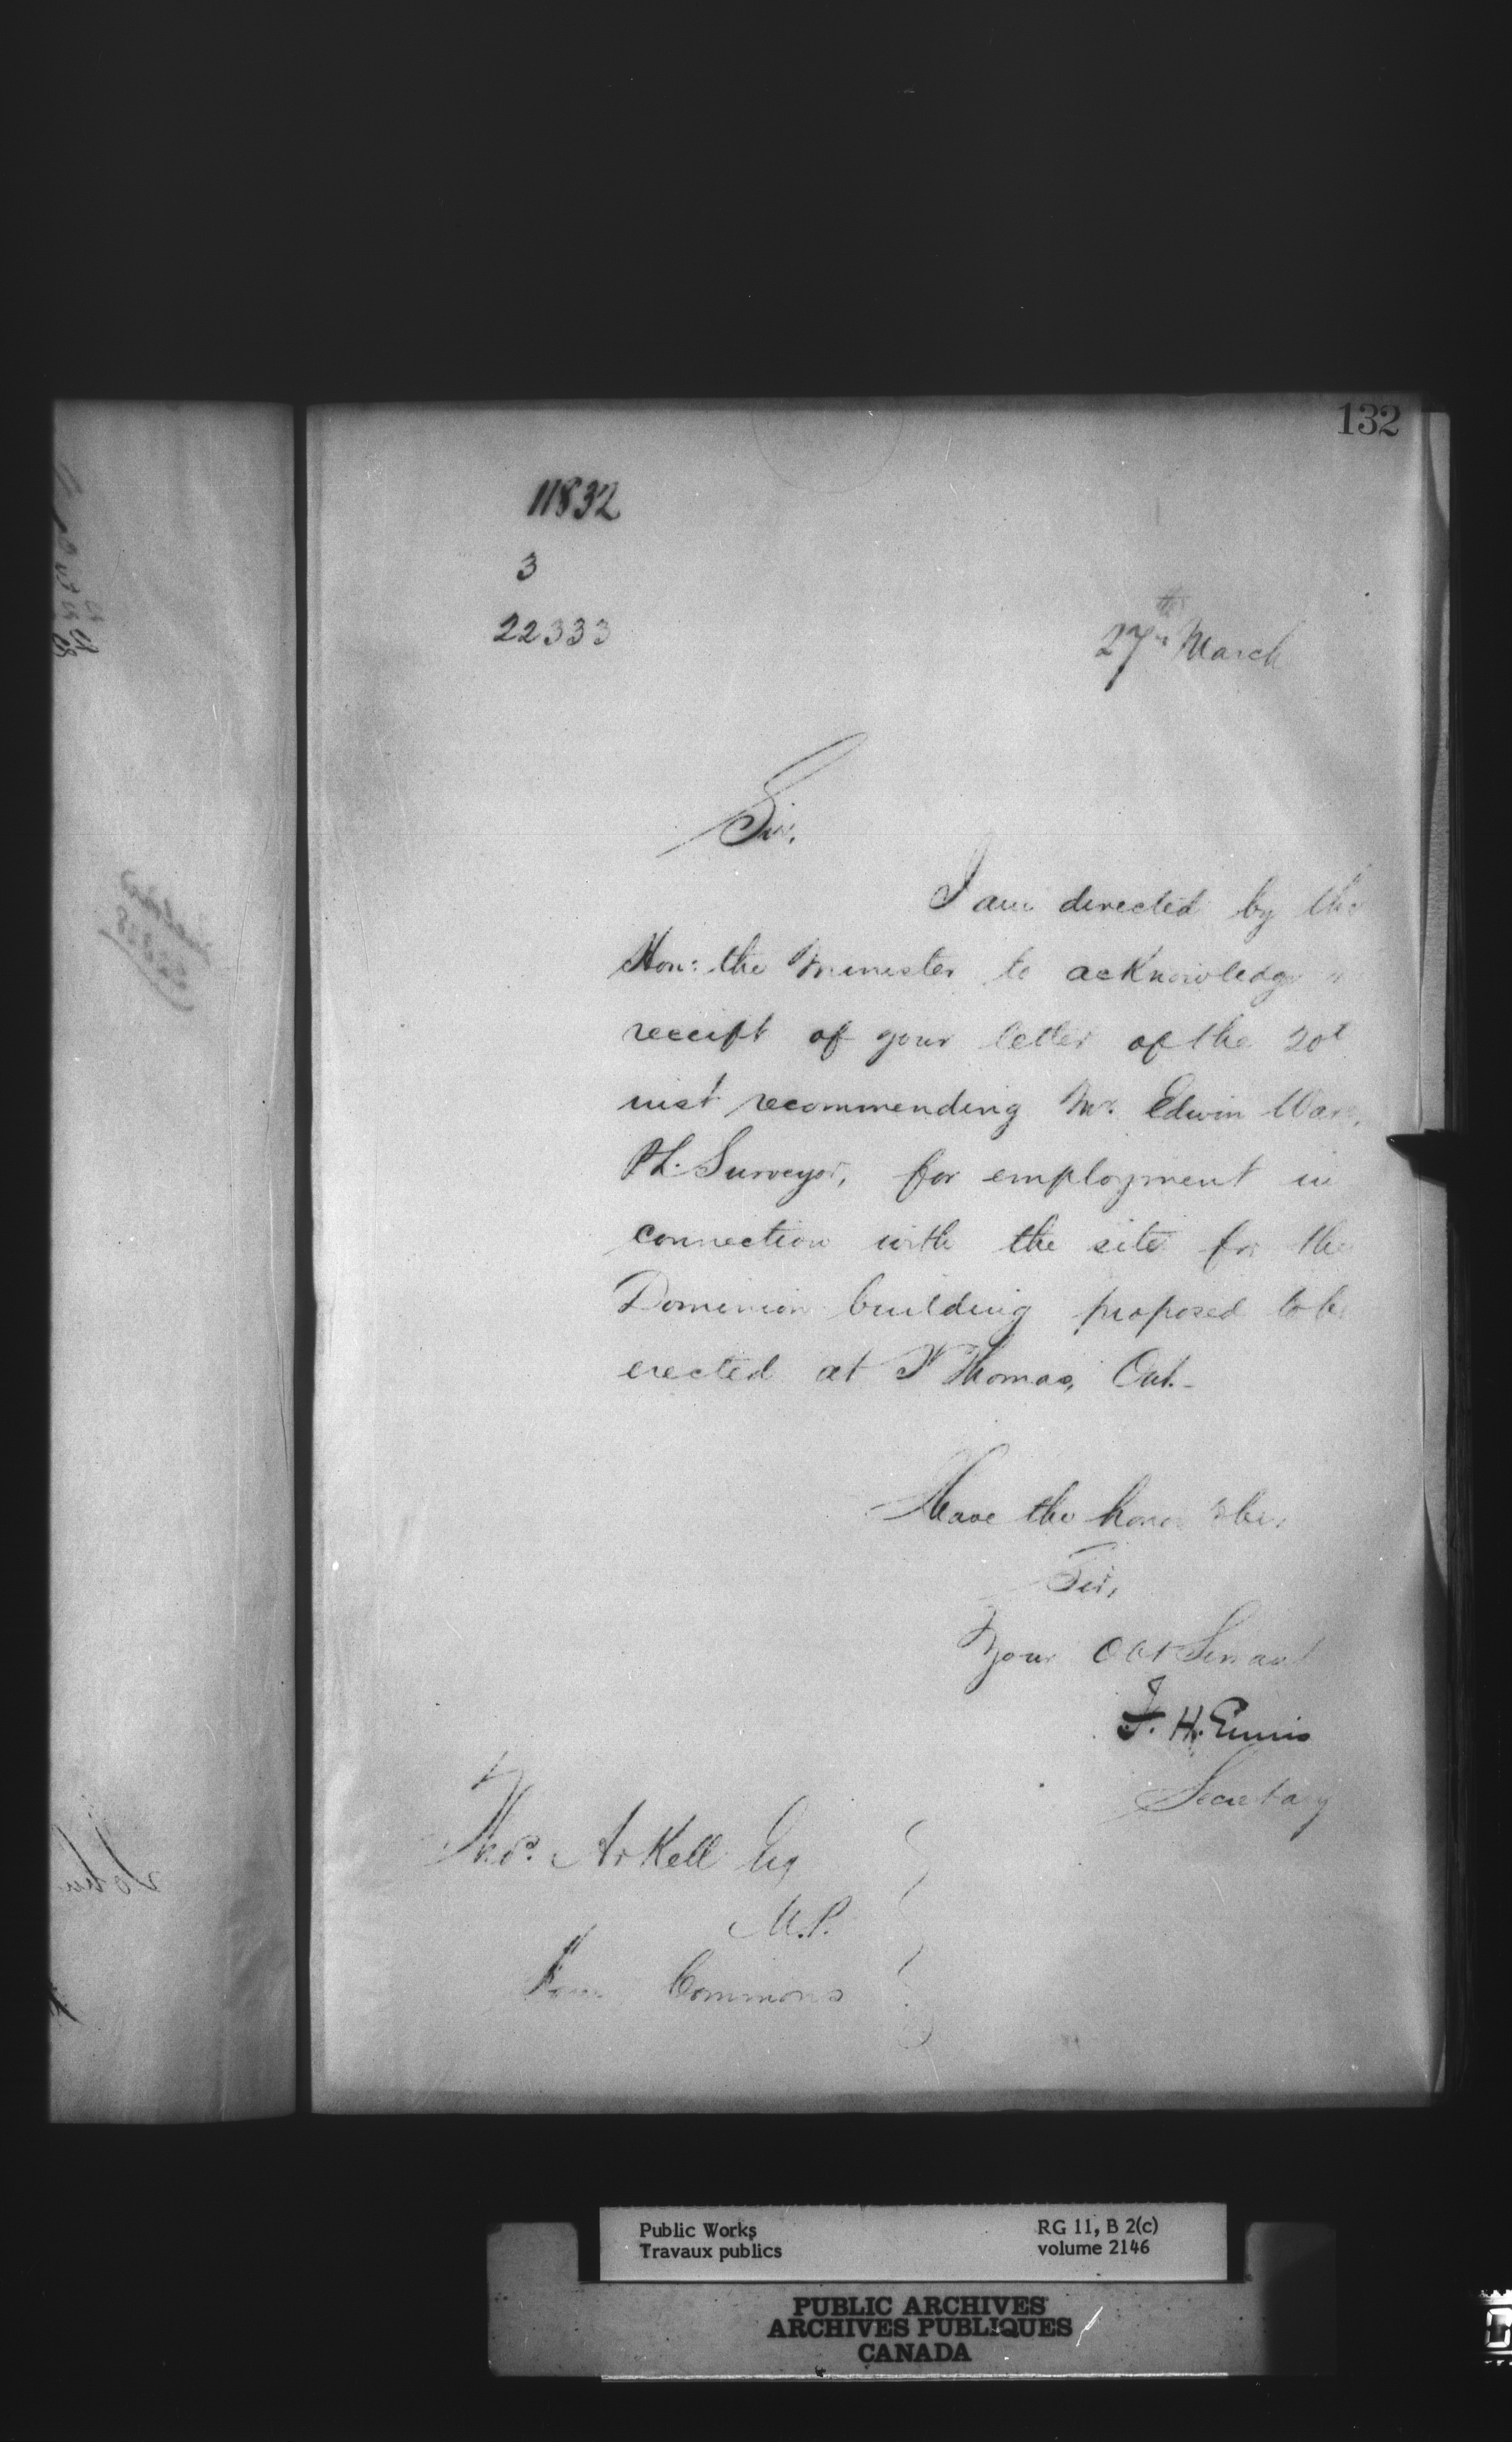 132
11832
3
22333
27th March
Sir,
I am directed by the
Hon: the Minister to acknowledge
receipt of your letter of the 20th
inst recommending Mr. Edwin
P.L. Surveyor, for employment in
connection with the site for the
Dominion building proposed to be
erected at St Thomas, Ont.-
Have the honor to be,
Sir,
Your Obt Servant
F. H. Ennis
Secretary
Thos. Arkell Esq
M.P.
Commons
Public Works
Travaux publics
RG 11, B 2(c)
volume 2146
PUBLIC ARCHIVES
ARCHIVES PUBLIQUES
CANADA